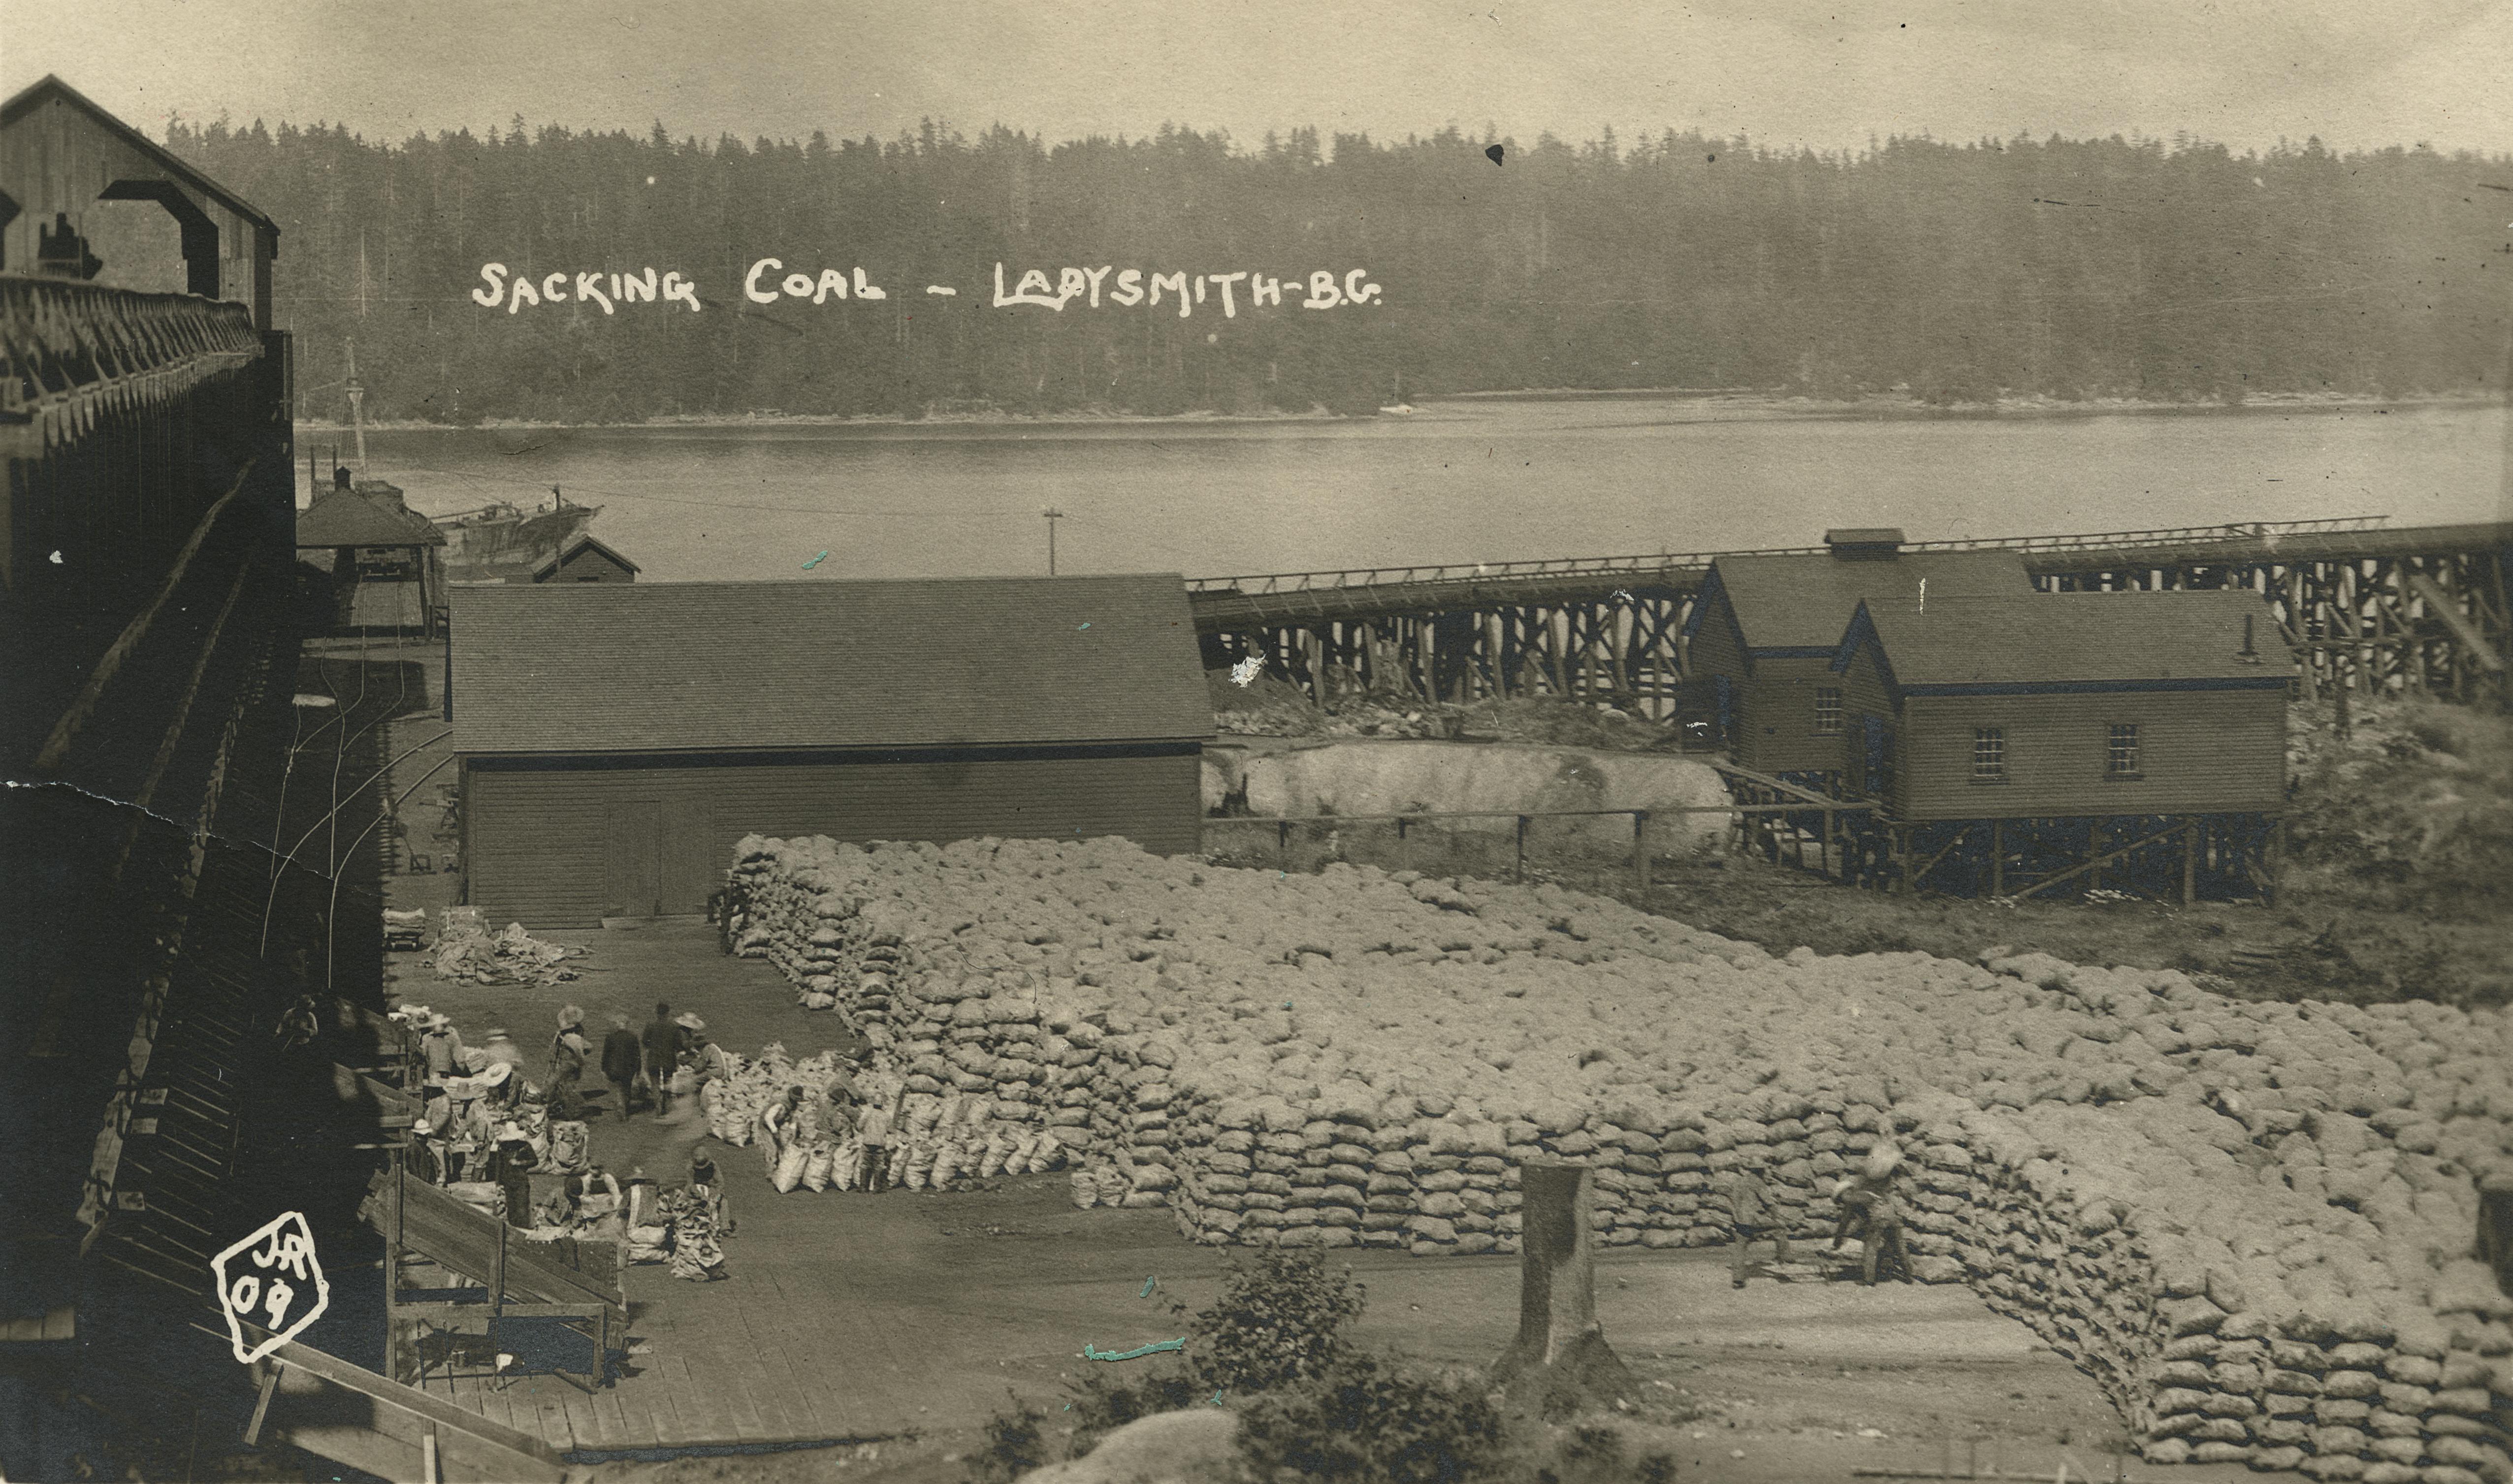 SACKING COAL - LADYSMITH-B.C.
JR
09